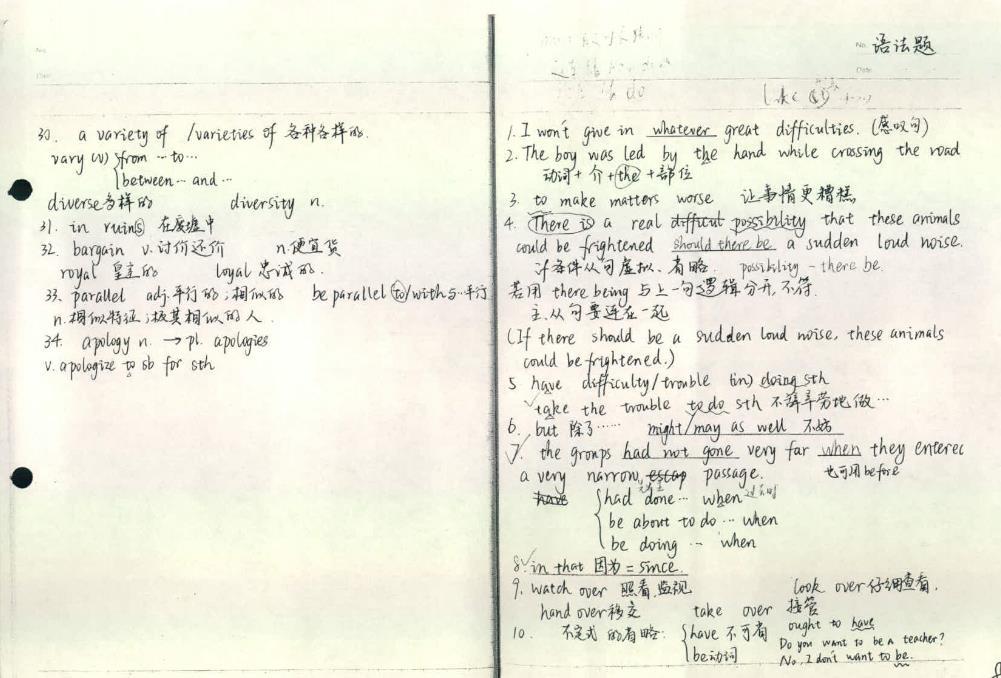 30. a variety of /varieties of 各种各样的.
vary (v) from … to …
between … and …
diverse 多样的 diversity n.
31. in ruins 在废墟中
32. bargain v. 讨价还价 n. 便宜货
royal 皇室的 loyal 忠诚的.
33. parallel adj. 平行的；相似的 be parallel to/with 与…平行
n. 相似特征；极其相似的人
34. apology n. → pl. apologies
v. apologize to sb for sth
No.
Date
No. 语法题
Date
1. I won't give in whatever great difficulties. (感叹句)
2. The boy was led by the hand while crossing the road
动词 + 介 + the + 部位
3. to make matters worse 让事情更糟糕
4. There is a real difficut possibility that these animals
could be frightened should there be a sudden loud noise.
if条件从句虚拟、省略. possibility – there be.
若用 there being 与上一句逻辑分开, 不符.
主、从句要连在一起
(If there should be a sudden loud noise, these animals
could be frightened.)
5 have difficulty/trouble (in) doing sth
take the trouble to do sth 不辞辛劳地做…
6. but 除了…… might/may as well 不妨
7. the groups had not gone very far when they enterec
a very narrow escap passage. 也可用 before
have had done … when 过去时
be about to do … when
be doing … when
8. in that 因为 = since.
9. watch over 照看, 监视 look over 仔细查看.
hand over 移交 take over 接管
10. 不定式的省略: have 不可省 ought to have
be动词 Do you want to be a teacher?
No, I don't want to be.